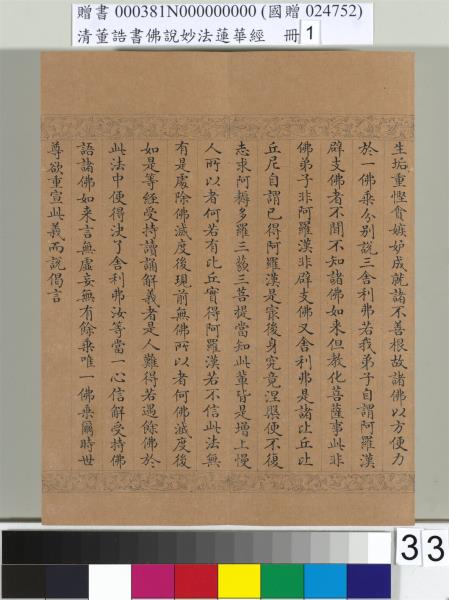 贈書 000381N000000000 (國贈 024752)
清董誥書佛說妙法蓮華經 冊 1
生垢重慳貪嫉妒成就諸不善根故諸佛以方便力
於一佛乘分別說三舍利弗若我弟子自謂阿羅漢
辟支佛者不聞不知諸佛如來但教化菩薩事此非
佛弟子非阿羅漢非辟支佛又舍利弗是諸比丘比
丘尼自謂已得阿羅漢是最後身究竟涅槃便不復
志求阿耨多羅三藐三菩提當知此輩皆是增上慢
人所以者何若有比丘實得阿羅漢若不信此法無
有是處除佛滅度後現前無佛所以者何佛滅度後
如是等經受持讀誦解義者是人難得若遇餘佛於
此法中便得決了舍利弗汝等當一心信解受持佛
語諸佛如來言無虛妄無有餘乘唯一佛乘爾時世
尊欲重宣此義而說偈言
33